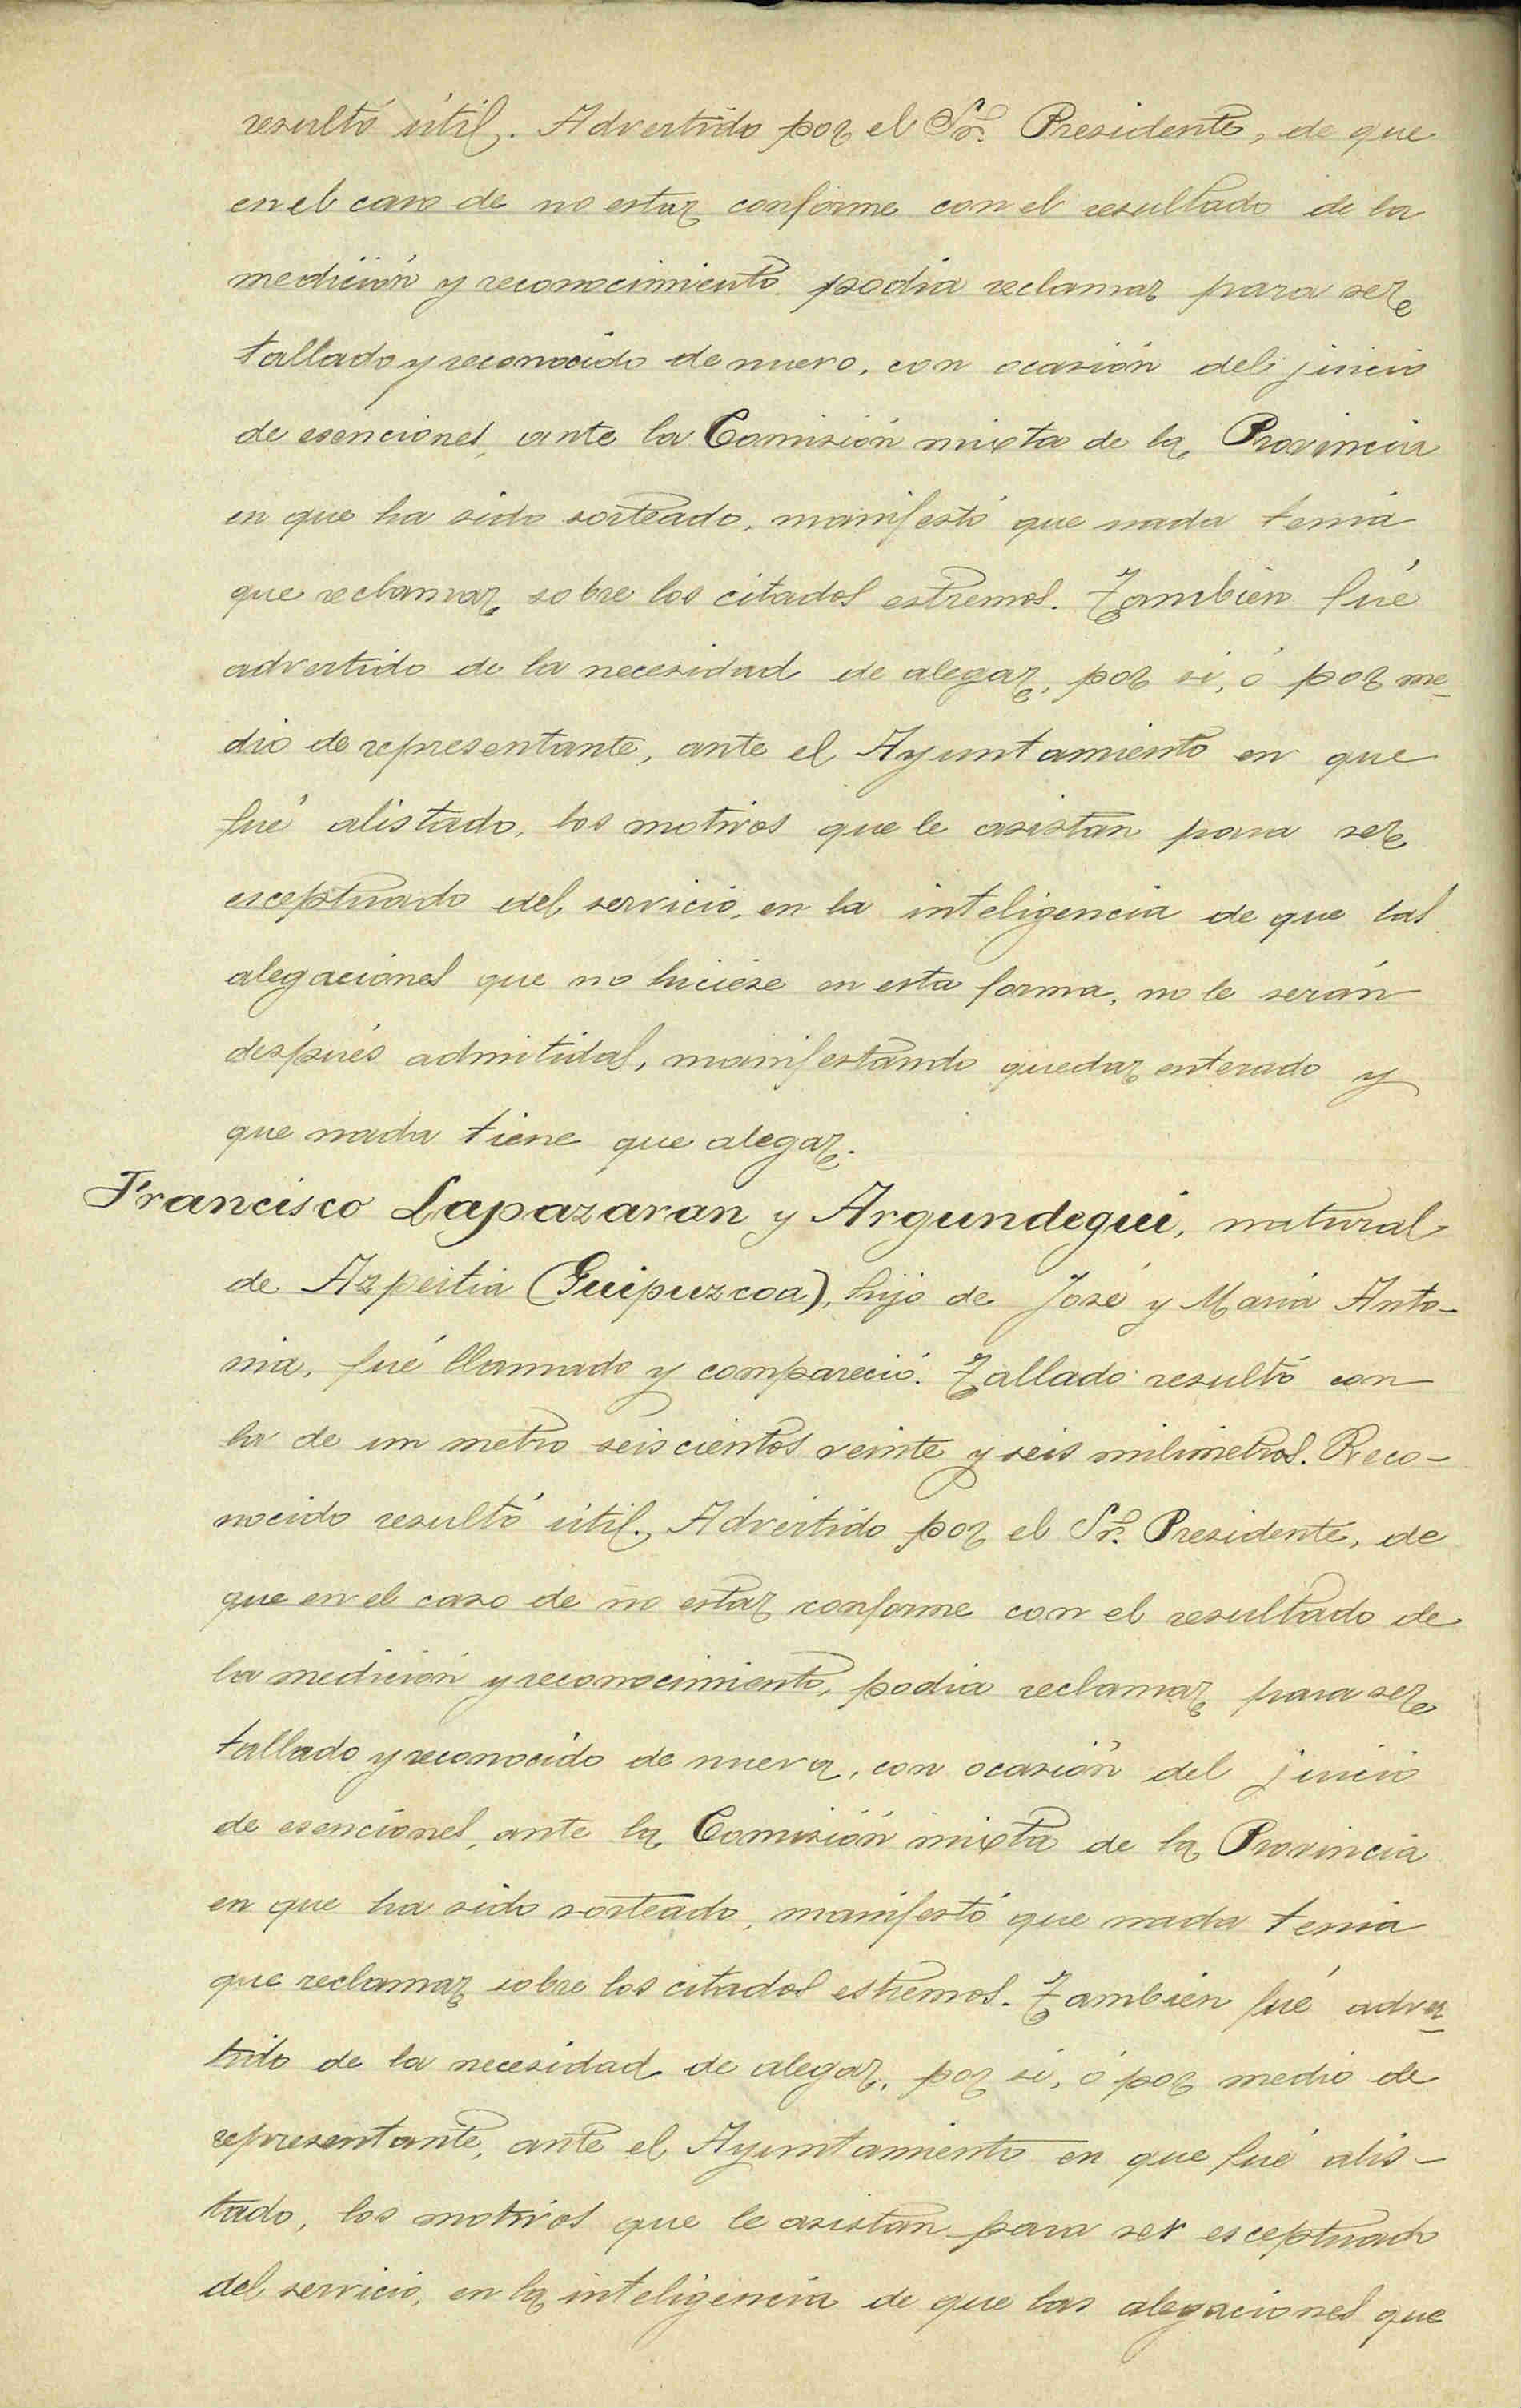 resultó útil. Advertido por el Sr. Presidente, de que
en el caso de no estar conforme con el resultado de la
medición y reconocimiento podia reclamar para ser
tallado y reconocido de nuevo, con ocasión del juicio
de esenciones, ante la Comisión mixta de la Provincia
en que ha sido sorteado, manifestó que nada tenia
que reclamar sobre los citados estremos. Tambien fué
advertido de la necesidad de alegar, por si, ó por me-
dio de representante, ante el Ayuntamiento en que
fué alistado, los motivos que le asistan para ser
esceptuado del servicio, en la inteligencia de que las
alegaciones que no hiciere en esta forma, no le serán
después admitidas, manifestando quedar enterado y
que nada tiene que alegar.
Francisco Lapazaran y Argundegui, natural
de Azpeitia (Guipuzcoa), hijo de José y Maria Anto-
nia, fué llamado y compareció. Tallado resultó con
la de un metro seiscientos veinte y seis milimetros. Reco-
nocido resultó útil. Advertido por el Sr. Presidente, de
que en el caso de no estar conforme con el resultado de
la medición y reconocimiento, podia reclamar para ser
tallado y reconocido de nuevo, con ocasión del juicio
de esenciones, ante la Comisión mixta de la Provincia
en que ha sido sorteado, manifestó que nada tenia
que reclamar sobre los citados estremos. Tambien fué adver-
tido de la necesidad de alegar, por si, ó por medio de
representante, ante el Ayuntamiento en que fué alis-
tado, los motivos que le asistan para ser esceptuado
del servicio, en la inteligencia de que las alegaciones que